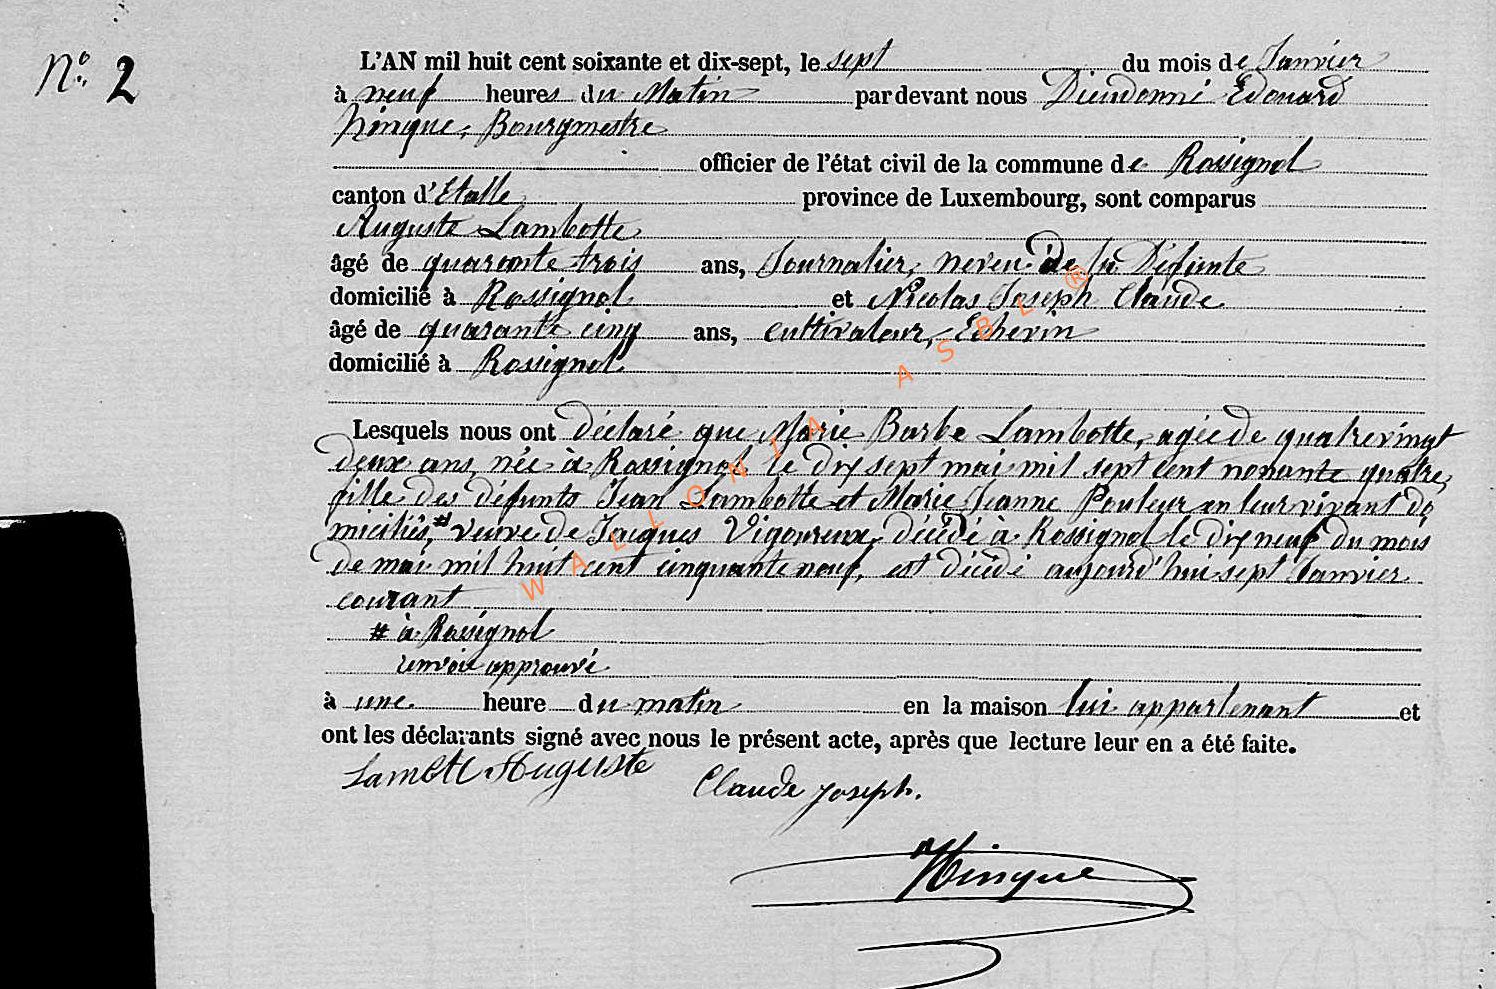 N° 2
L'AN mil huit cent soixante et dix-sept, le sept du mois de Janvier
à neuf heures du Matin par devant nous Dieudonné Edouard
Hinque, Bourgmestre
officier de l'état civil de la commune de Rossignol
canton d'Etalle province de Luxembourg, sont comparus
Auguste Lambotte
âgé de quarante trois ans, Journalier, neveu de la Défunte
domicilié à Rossignol et Nicolas Joseph Claude
âgé de quarante cinq ans, cultivateur, Echevin
domicilié à Rossignol
Lesquels nous ont déclaré que Marie Barbe Lambotte, agée de quatrevingt
deux ans, née à Rossignol le dix sept mai mil sept cent nonante quatre,
fille des défunts Jean Lambotte et Marie Jeanne Pouleur en leur vivant do
miciliés, # veuve de Jacques Vigoureux décédé à Rossignol le dix neuf du mois
de mai mil huit cent cinquante neuf, est décédé aujourd'hui sept Janvier
courant
# à Rossignol
renvoi approuvé
à une heure du matin en la maison lui appartenant et
ont les déclarants signé avec nous le présent acte, après que lecture leur en a été faite.
Auguste Claude Joseph.
Hinque
WALLONIA ASBL ®